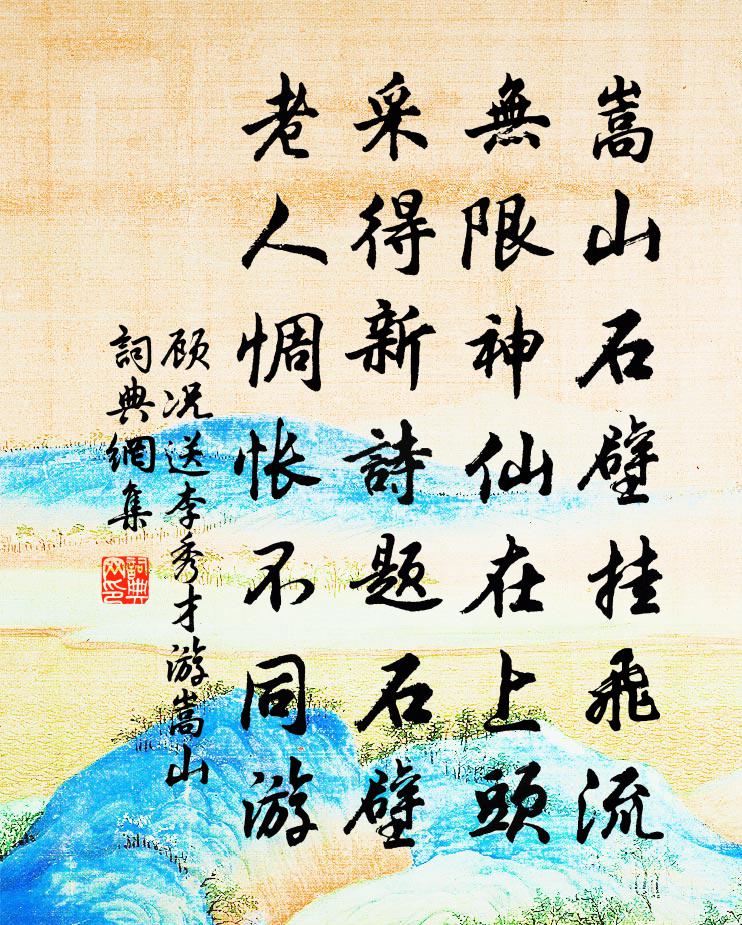 嵩山石壁挂飛流
無限神仙在上頭
采得新詩題石壁
老人惆怅不同游
顾况送李秀才游嵩山
詞典網集
詞典
网印